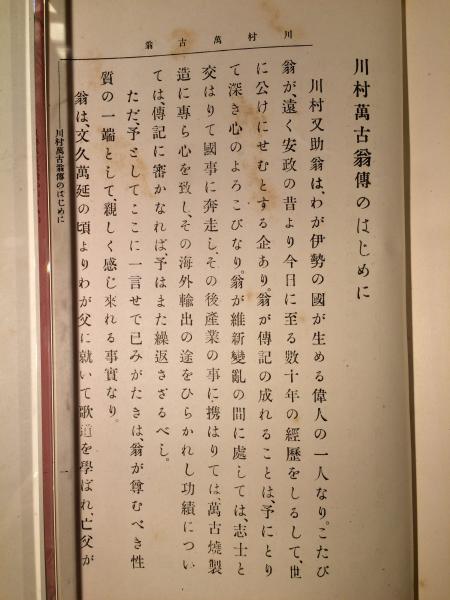 川村萬古翁
川村萬古翁傳のはじめに
川村又助翁は、わが伊勢の國が生める偉人の一人なり。こたび
翁が、遠く安政の昔より今日に至る數十年の經歷をしるして、世
に公けにせむとする企あり。翁が傳記の成れることは、予にとり
て深き心のよろこびなり。翁が維新變亂の間に處しては、志士と
交はりて國事に奔走し、その後產業の事に携はりては、萬古燒製
造に專ら心を致し、その海外輸出の途をひらかれし功績につい
ては、傳記に審かなれば予はまた繰返さざるべし。
ただ、予としてここに一言せで已みがたきは、翁が尊むべき性
質の一端として、親しく感じ來れる事實なり。
翁は、文久萬延の頃よりわが父に就いて歌道を學ばれ、亡父が
川村萬古翁傳のはじめに
一